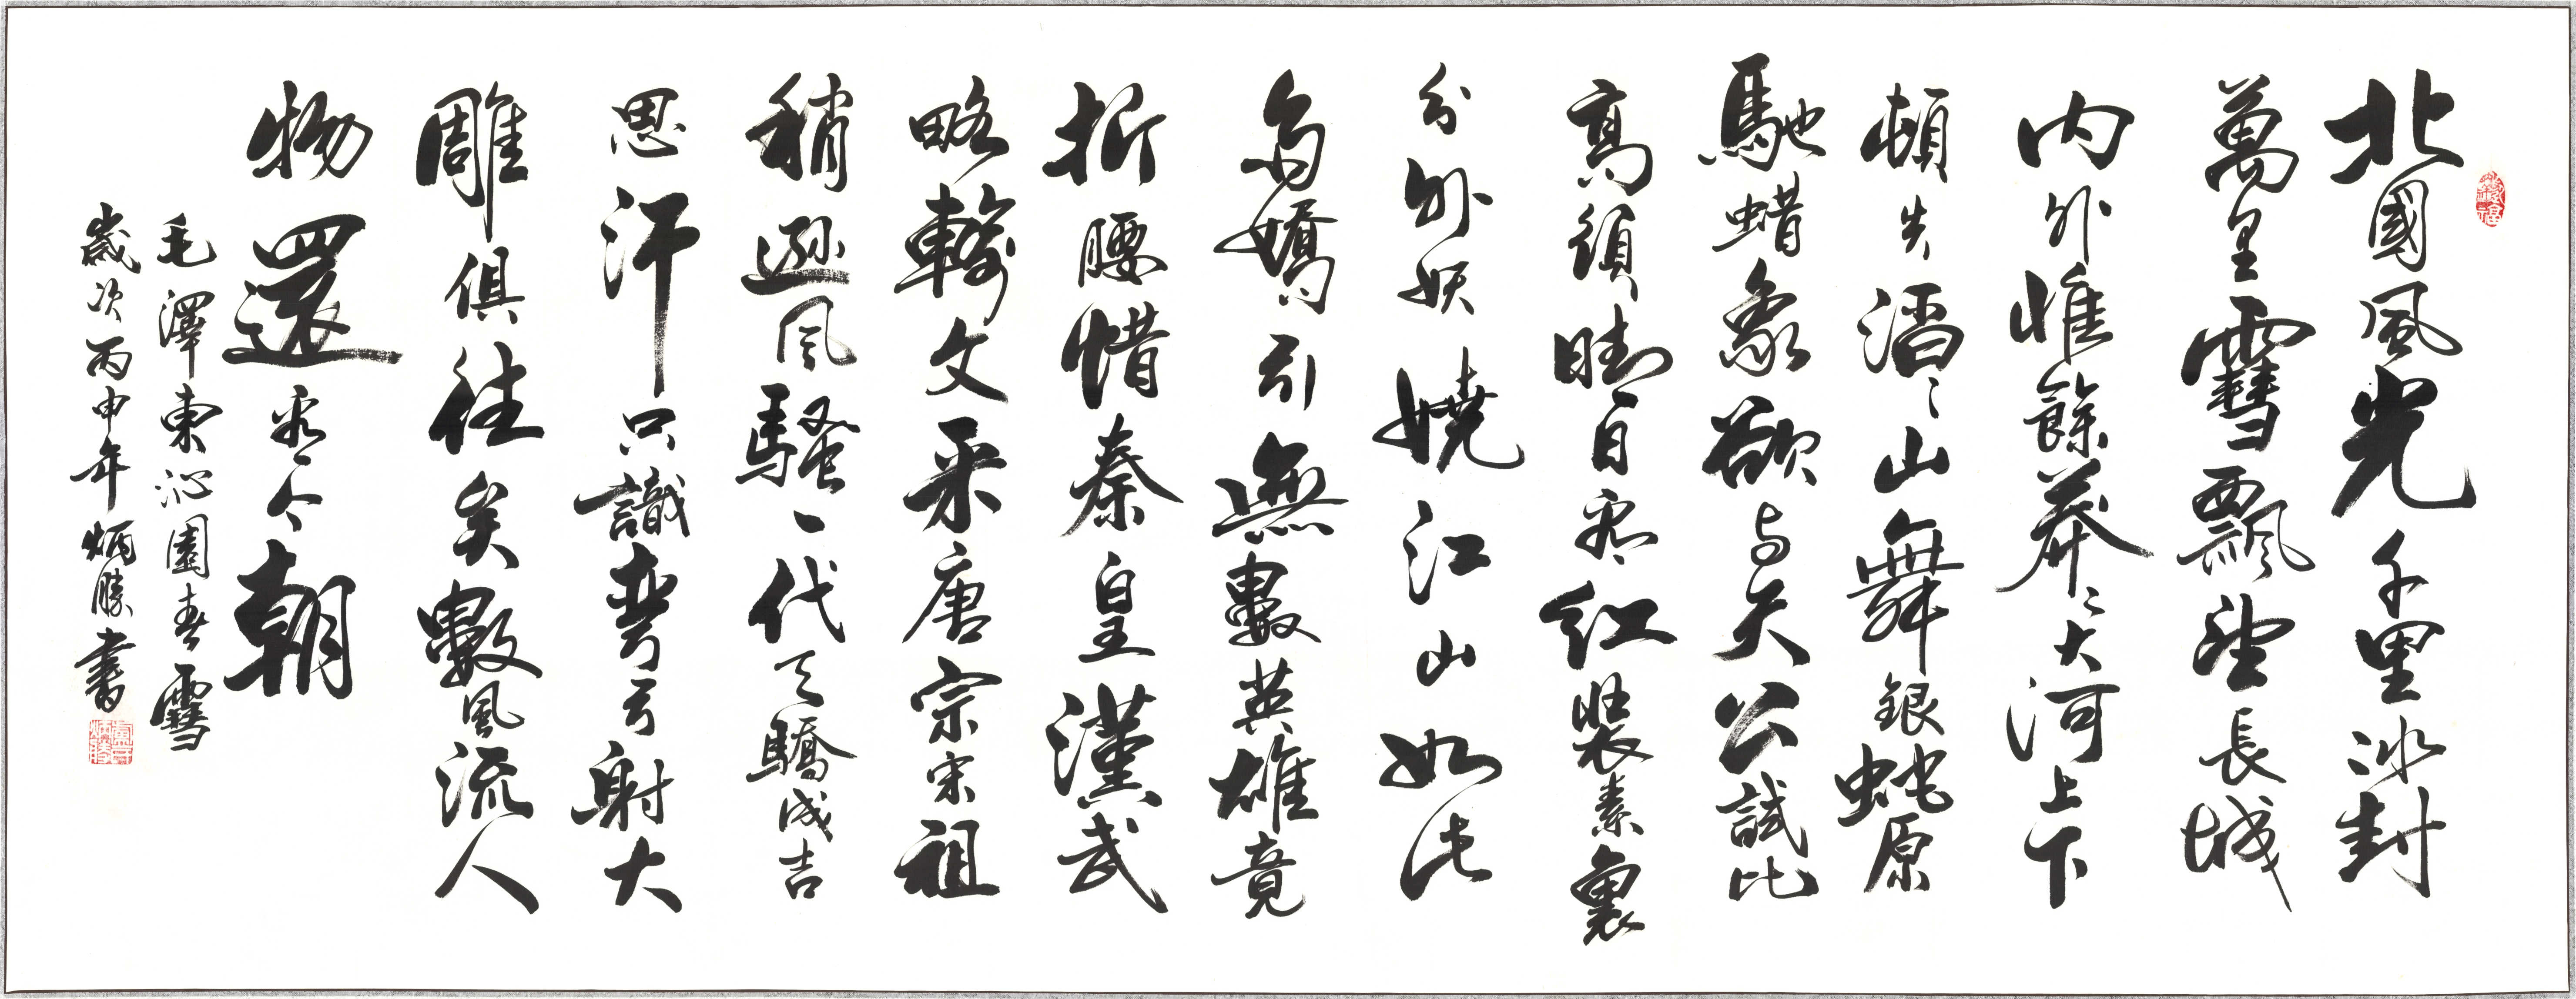 北國風光千里冰封
萬里雪飄望長城
内外惟餘莽〻大河上下
頓失滔〻山舞銀蛇原
馳蜡象欲与天公試比
高須晴日看紅裝素裹
分外妖嬈江山如此
多嬌引無數英雄竟
折腰惜秦皇漢武
略輸文采唐宗宋祖
稍遜风騷一代天驕成吉
思汗只識彎弓射大
雕俱往矣數風流人
物還看今朝
毛澤東沁園春雪
歲次丙申年炳勝書